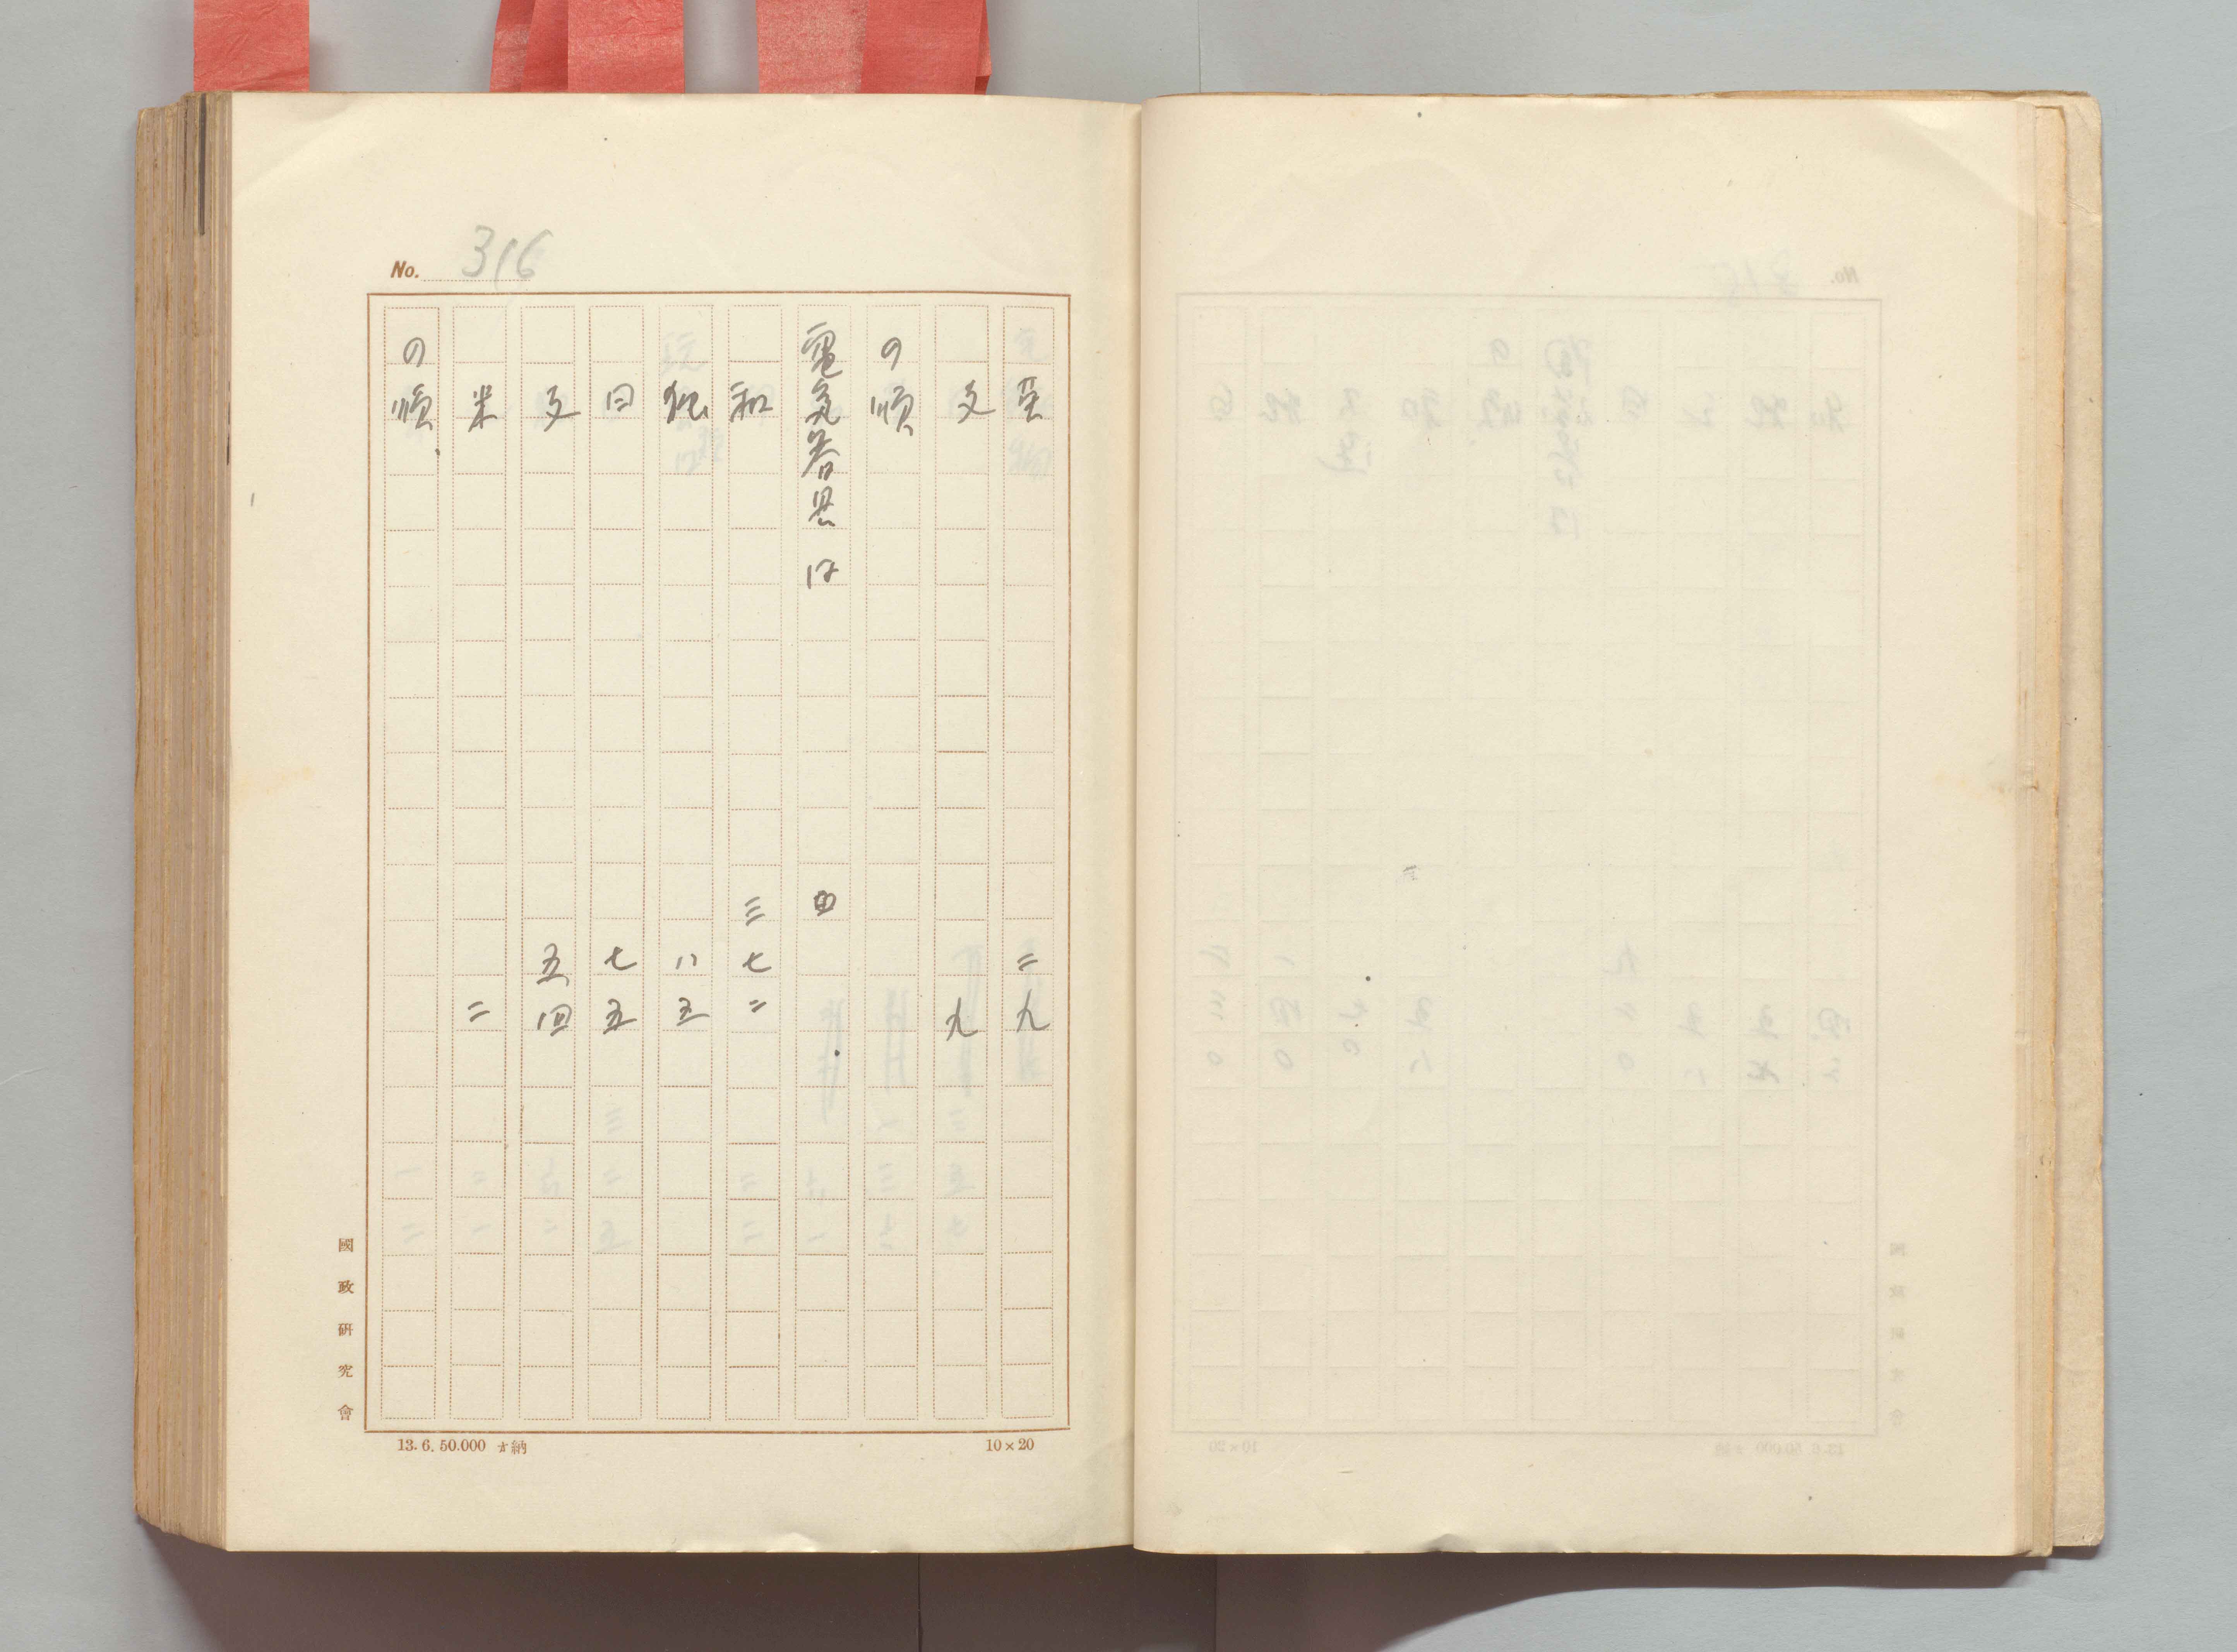 No. 316
英 二九
支 九
の順
電気器具は
和 三七二
独 八五
日 七五
支 五四
米 二
の順
國政研究會
13.6.50.000 納
10×20